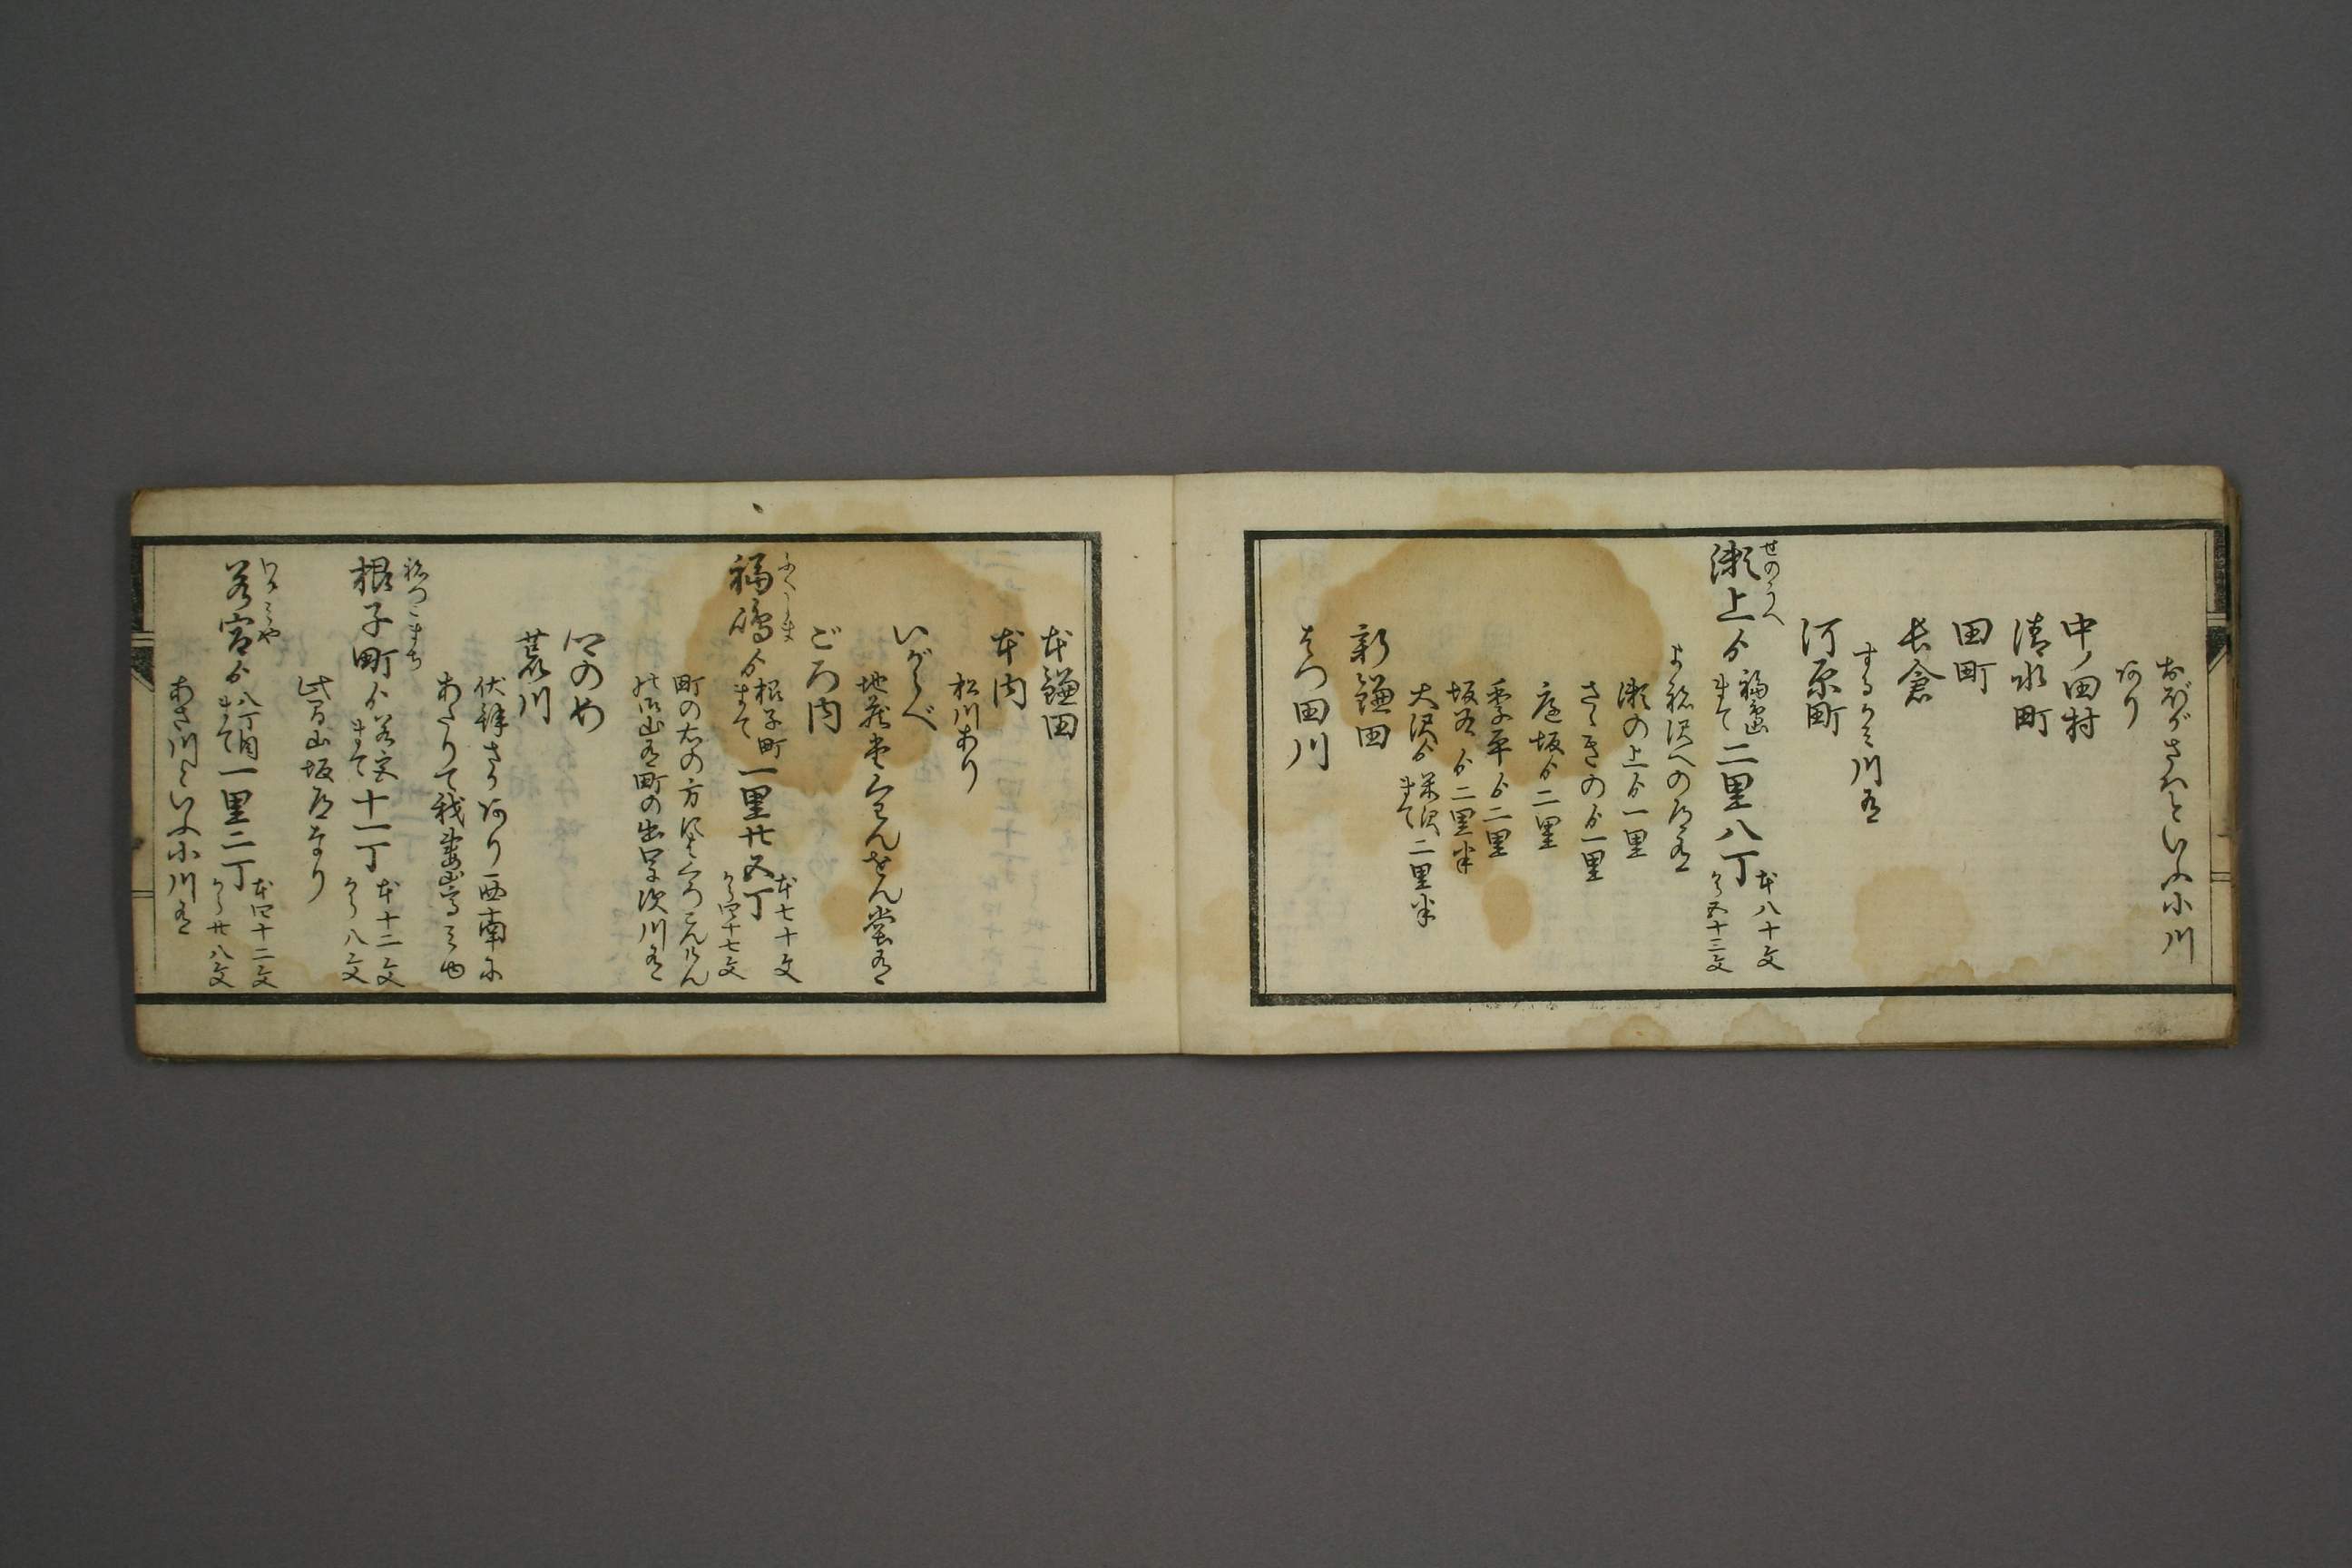 おほがさわといふ小川
あり
中ノ田村
清水町
田町
長倉
するかみ川有
河原町
せのうへ
瀬上ゟ福島まて二里八丁本八十文から五十三文
よ祢沢への道有
瀬の上ゟ一里
さゝきのゟ一里
庭坂ゟ二里
李平ゟ二里
坂谷ゟ二里半
大沢ゟ米沢まて二里半
新鎌田
はつ田川
本鎌田
本内
松川あり
いがらべ
地蔵堂くわんをん堂有
ごろ内
ふくしま
福嶋ゟ根子町まて一里廿五丁本七十文から四十七文
町の右の方に
山有町の出口に須川有
荒川
伏拝さか有り西南に
あたりて我妻山高みゆ
祢つこまち
根子町ゟ若宮まて十一丁本十二文から八文
此間山坂道なり
わかみや
若宮ゟ八丁目まて一里二丁本四十二文から廿八文
あさ川といふ小川有